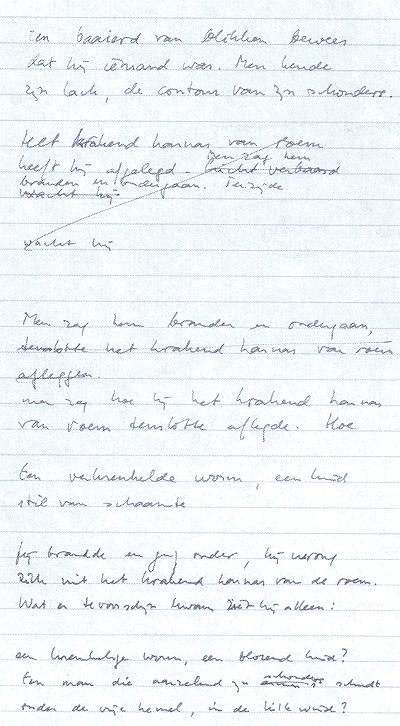 Een baaierd van blikken bewees
dat hij iemand was. Men kende
zijn lach, de contour van zijn schouders.
Het krakend harnas van roem
men zag hem
heeft hij afgelegd. lucht verbaasd
branden en ondergaan. Terzijde
wacht hij
wacht hij
Men zag hem branden en ondergaan,
tenslotte het krakend harnas van roem
afleggen.
men zag hoe hij het krakend harnas
van roem tenslotte aflegde. Hoe
Een verkreukelde worm, een huid
stil van schaamte
Hij brandde en ging onder, hij wrong
zich uit het krakend harnas van de roem.
Wat er tevoorschijn kwam ziet hij alleen:
een kreukelige worm, een blozend huid?
Een man die aarzelend zijn schouders schudt
onder de vrije hemel, in de kille wind?